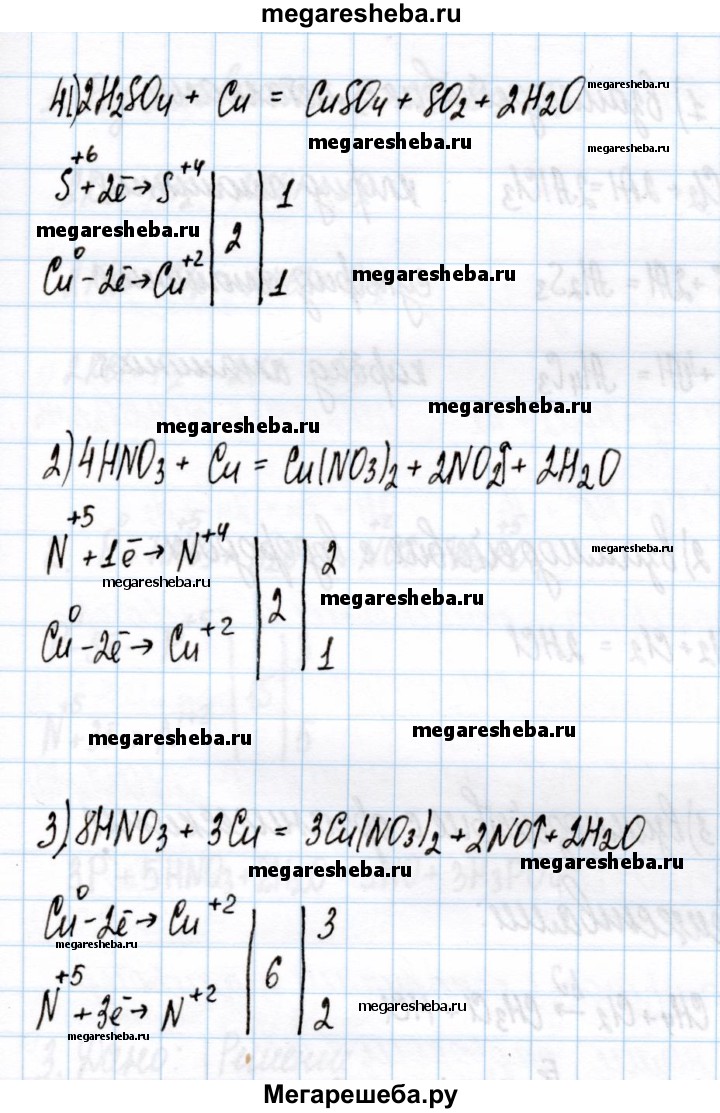 megaresheba.ru
41)2H2SO4 + Cu = CuSO4 + SO2 + 2H2O
megaresheba.ru
megaresheba.ru
megaresheba.ru
+6 +4
S + 2ē → S 1
megaresheba.ru 2
0 +2
Cu - 2ē → Cu 1
megaresheba.ru
megaresheba.ru
megaresheba.ru
2) 4HNO3 + Cu = Cu(NO3)2 + 2NO2↑ + 2H2O
+5 +4
N + 1ē → N 2
megaresheba.ru
megaresheba.ru
2
megaresheba.ru
0 +2
Cu - 2ē → Cu 1
megaresheba.ru
megaresheba.ru
3) 8HNO3 + 3Cu = 3Cu(NO3)2 + 2NO↑ + 2H2O
megaresheba.ru
megaresheba.ru
0 +2
Cu - 2ē → Cu 3
megaresheba.ru
6
+5 +2
N + 3ē → N 2
megaresheba.ru
megaresheba.ru
Мегарешеба.ру